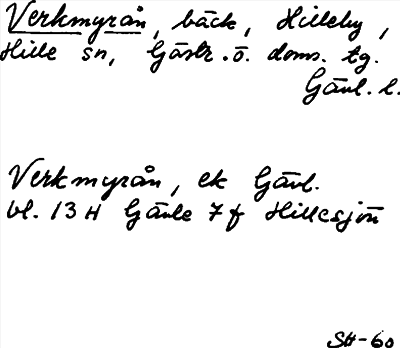 Verkmyrån, bäck, Hilleby,
Hille sn, Gästr. ö. doms. tg.
Gävl. l.
Verkmyrån, ek Gävl.
bl. 13 H Gävle 7 f Hillesjön
SH-60